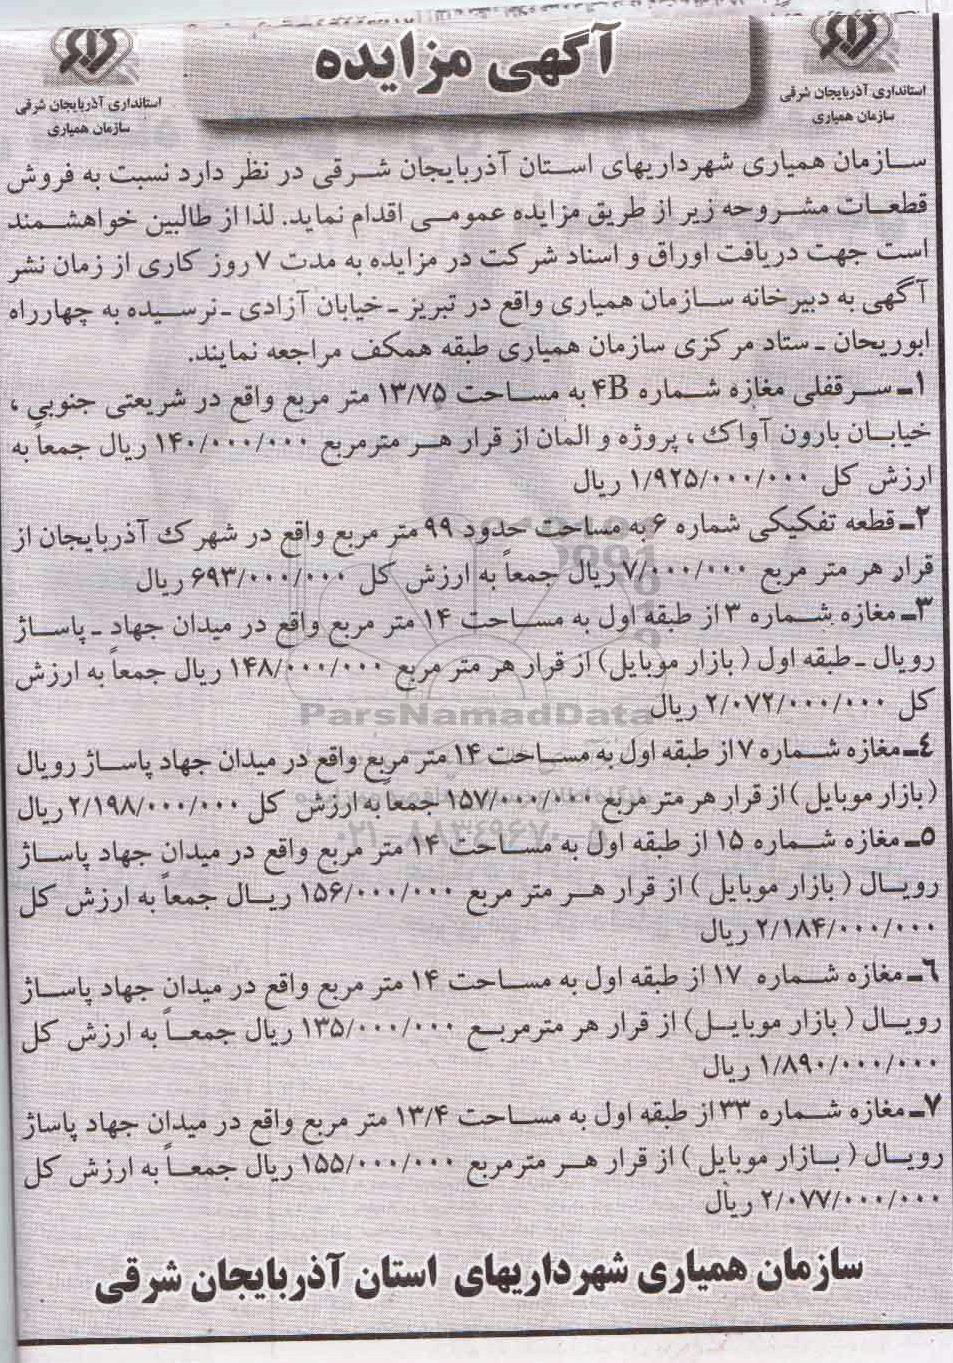 آگهی مزایده
استانداری آذربایجان شرقی
سازمان همیاری
استانداری آذربایجان شرقی
سازمان همیاری
سازمان همیاری شهرداریهای استان آذربایجان شرقی در نظر دارد نسبت به فروش
قطعات مشروحه زیر از طریق مزایده عمومی اقدام نماید. لذا از طالبین خواهشمند
است جهت دریافت اوراق و اسناد شرکت در مزایده به مدت ۷ روز کاری از زمان نشر
آگهی به دبیرخانه سازمان همیاری واقع در تبریز ـ خیابان آزادی ـ نرسیده به چهارراه
ابوریحان ـ ستاد مرکزی سازمان همیاری طبقه همکف مراجعه نمایند.
۱ـ سرقفلی مغازه شماره ۴B به مساحت ۱۳/۷۵ متر مربع واقع در شریعتی جنوبی ،
خیابان بارون آواک ، پروژه و المان از قرار هر مترمربع ۱۴۰/۰۰۰/۰۰۰ ریال جمعاً به
ارزش کل ۱/۹۲۵/۰۰۰/۰۰۰ ریال
۲ـ قطعه تفکیکی شماره ۶ به مساحت حدود ۹۹ متر مربع واقع در شهرک آذربایجان از
قرار هر متر مربع ۷/۰۰۰/۰۰۰ ریال جمعاً به ارزش کل ۶۹۳/۰۰۰/۰۰۰ ریال
۳ـ مغازه شماره ۳ از طبقه اول به مساحت ۱۴ متر مربع واقع در میدان جهاد ـ پاساژ
رویال ـ طبقه اول ( بازار موبایل) از قرار هر متر مربع ۱۴۸/۰۰۰/۰۰۰ ریال جمعاً به ارزش
کل ۲/۰۷۲/۰۰۰/۰۰۰ ریال
ParsNamadData
۴ـ مغازه شماره ۷ از طبقه اول به مساحت ۱۴ متر مربع واقع در میدان جهاد پاساژ رویال
( بازار موبایل ) از قرار هر متر مربع ۱۵۷/۰۰۰/۰۰۰ جمعاً به ارزش کل ۲/۱۹۸/۰۰۰/۰۰۰ ریال
۰۲۱-۸۸۳۴۹۶۷۰-۵
۵ـ مغازه شماره ۱۵ از طبقه اول به مساحت ۱۴ متر مربع واقع در میدان جهاد پاساژ
رویال ( بازار موبایل ) از قرار هر متر مربع ۱۵۶/۰۰۰/۰۰۰ ریال جمعاً به ارزش کل
۲/۱۸۴/۰۰۰/۰۰۰ ریال
۶ـ مغازه شماره ۱۷ از طبقه اول به مساحت ۱۴ متر مربع واقع در میدان جهاد پاساژ
رویال ( بازار موبایل) از قرار هر مترمربع ۱۳۵/۰۰۰/۰۰۰ ریال جمعاً به ارزش کل
۱/۸۹۰/۰۰۰/۰۰۰ ریال
۷ـ مغازه شماره ۳۳ از طبقه اول به مساحت ۱۳/۴ متر مربع واقع در میدان جهاد پاساژ
رویال ( بازار موبایل ) از قرار هر مترمربع ۱۵۵/۰۰۰/۰۰۰ ریال جمعاً به ارزش کل
۲/۰۷۷/۰۰۰/۰۰۰ ریال
سازمان همیاری شهرداریهای استان آذربایجان شرقی